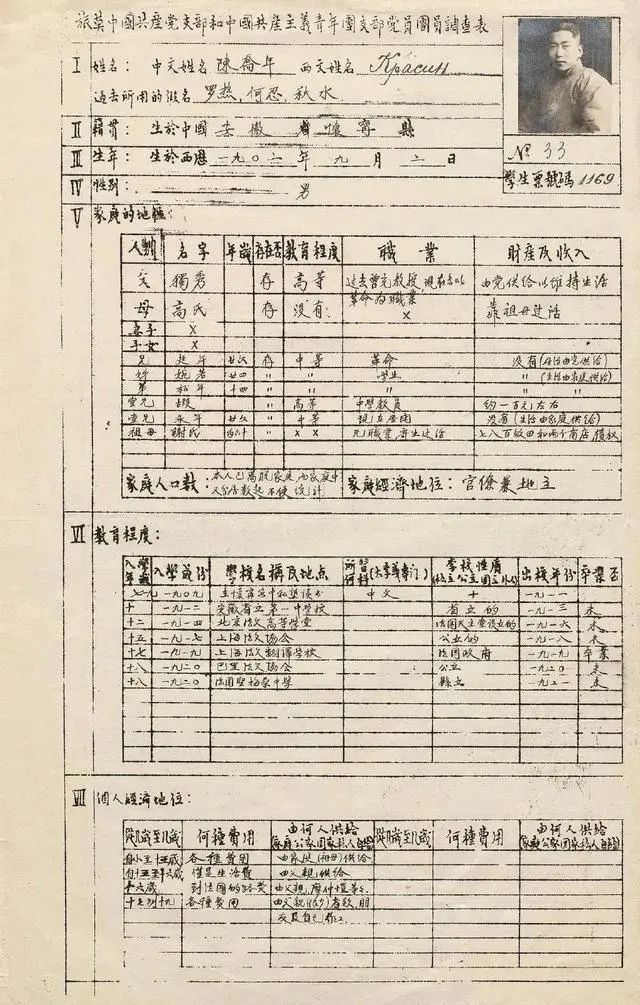 旅莫中國共産党支部和中國共産主義青年團支部党員團員調查表
I 姓名: 中文姓名 陳喬年 西文姓名 Красин
過去所用的假名 罗热, 何忍, 秋水.
II 籍貫: 生於中國 安徽 省 懷寧 縣
III 生年: 生於西歷 一九〇二 年 九 月 二 日
IV 性别: 男
№ 33
學生票號碼 1169
V 家庭的地位:
人别 名字 年歲 存在否 教育程度 職業 財産及收入
父 獨秀 存 高等 过去曾充教授,現在专以革命为職業 由党供给以维持生活
母 高氏 存 没有 × 靠祖母过活
妻子 ×
子女 ×
兄 延年 廿六 存 中等 革命 没有(生活由党供给)
婉君 廿四 〃 〃 学生 〃(生活由家庭供给)
弟 松年 十四 〃 〃 〃 〃
堂兄 遐 〃 高等 中学教員 約一百元左右
堂兄 永年 〃 中等 现在 没有(生活由家庭供给)
祖母 謝氏 〃 × × 七八百畝田和两个商店
家庭人口數: 本人已离脱家庭 家庭經濟地位: 官僚兼地主
VI 教育程度:
入學年歲 入學年份 學校名稱及地點 所習何科(大学或专门) 學校性質 出校年份 卒業否
一九〇九 中文 + 一九一一
十 一九一二 安徽省立第一中學校 省立的 一九一三 未
十二 一九一四 北京法文高等學堂 法國天主堂设立的 一九一六 未
十五 一九一七 上海法文協会 公立的 一九一八 未
十七 一九一九 上海法文翻譯学校 法國政府 一九一九 卒業
十八 一九二〇 巴里法文協会 公立 一九二〇 未
十八 一九二〇 法國 中學 縣立 一九二一 未
VII 個人經濟地位:
從幾歲至幾歲 何種費用 由何人供给 從幾歲至幾歲 何種費用 由何人供给
自小至十五歲 各種費用 由家庭(祖母)供给
自十五至十六歲 僅是生活費 由父親供给
十六歲 到法國的路费 由父親,
十七到十九 各種費用 由父親(很少)
友及自己作工.